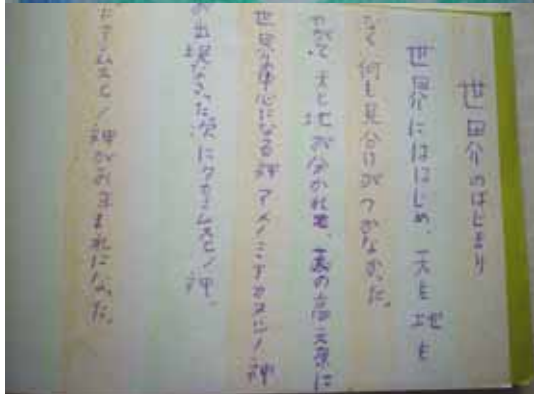 世界のはじまり
世界にはじめ、天も地も
なく何も見分けがつかなかった。
やがて、天と地が分かれ、天の高天原に
世界の中心になる神アメノミナカヌシノ神
が出現なさった次にタカミムスヒノ神、
ムスヒノ神がお生まれになった。